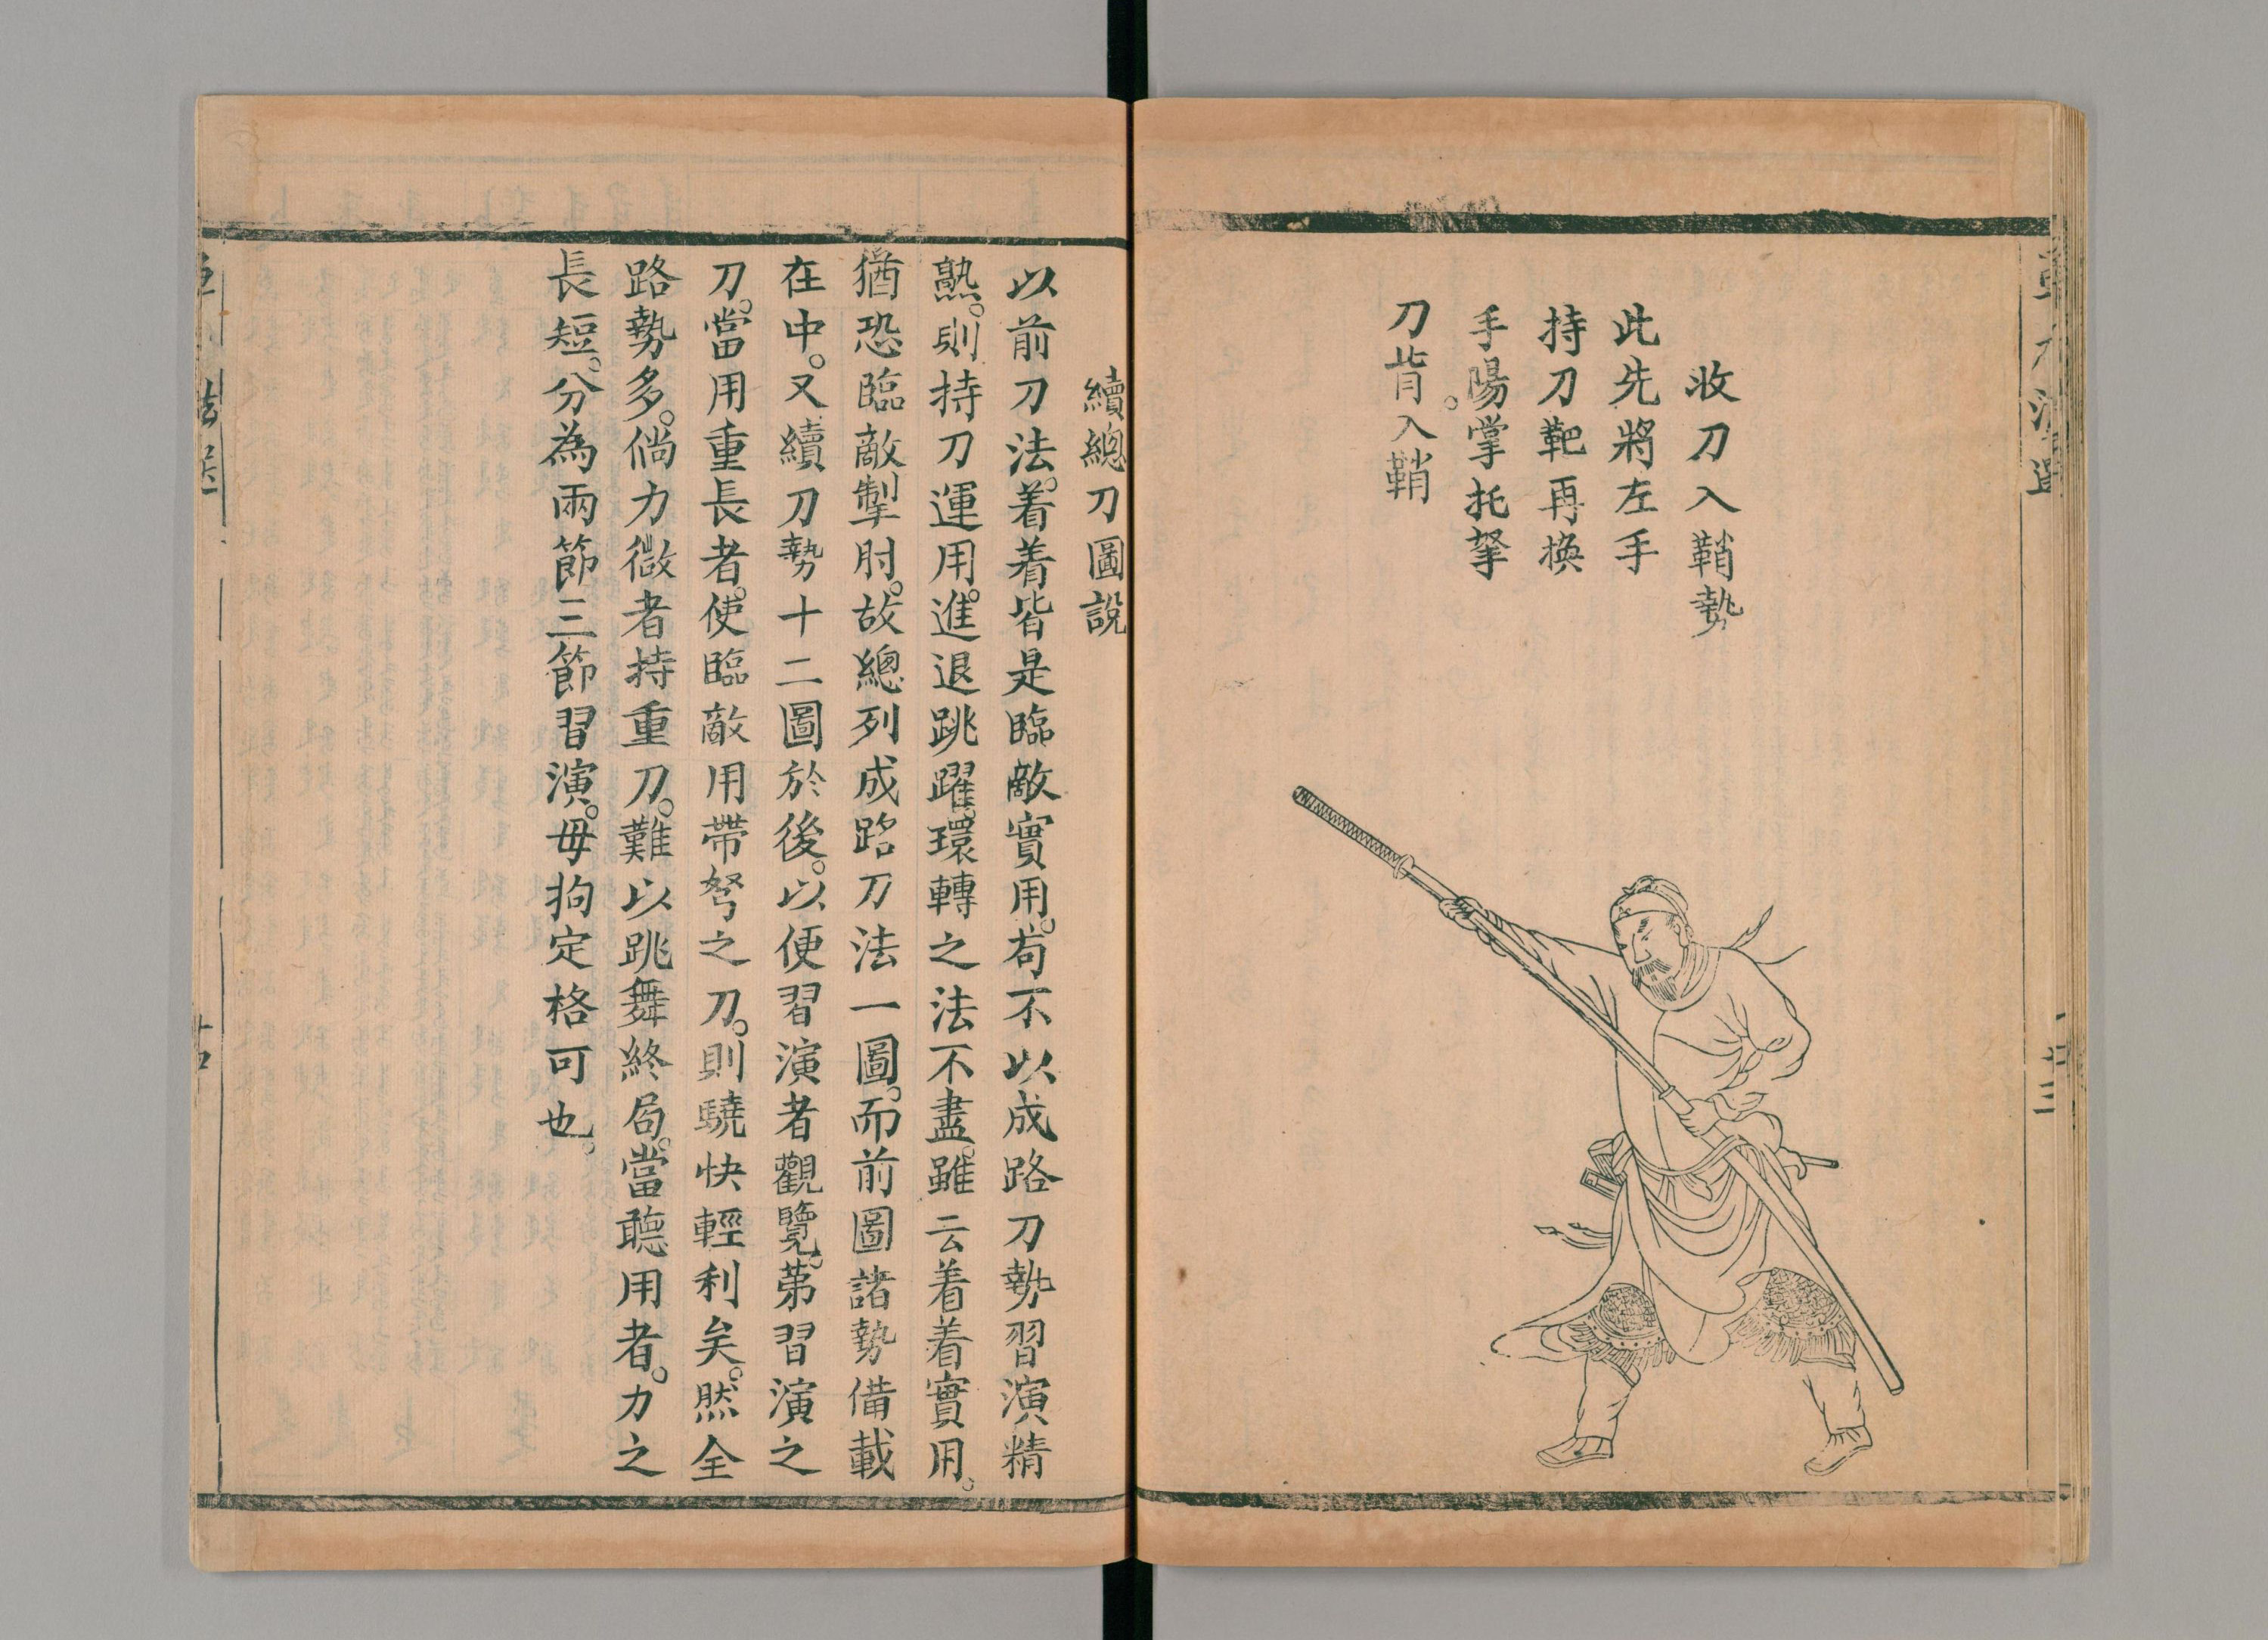 收刀入鞘勢
此先將左手
持刀靶再換
手陽掌托拏
刀背入鞘
續總刀圖說
以前刀法。着着皆是臨敵實用。苟不以成路刀勢習演精
熟。則持刀運用。進退跳躍。環轉之法不盡。雖云着着實用。
猶恐臨敵掣肘。故總列成路刀法一圖。而前圖諸勢備載
在中。又續刀勢十二圖於後。以便習演者觀覽。第習演之
刀。當用重長者。使臨敵用帶弩之刀。則驍快輕利矣。然全
路勢多。倘力微者持重刀。難以跳舞終局。當聽用者。力之
長短。分為兩節三節習演。毋拘定格可也。